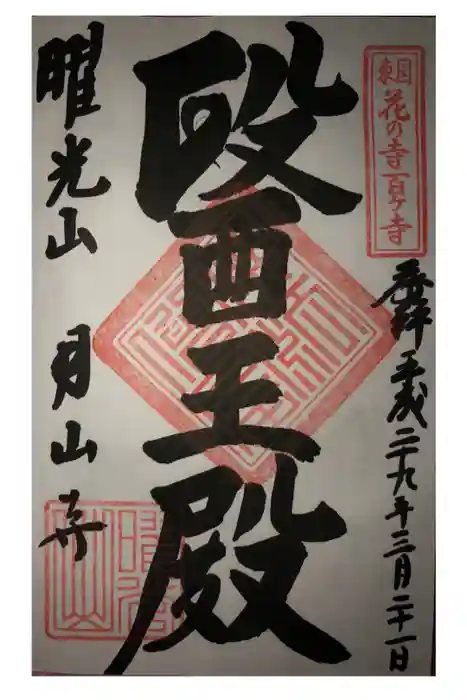 東国
花の寺百ヶ寺
奉拝 平成二十九年三月二十一日
醫王殿
曜光山 月山寺